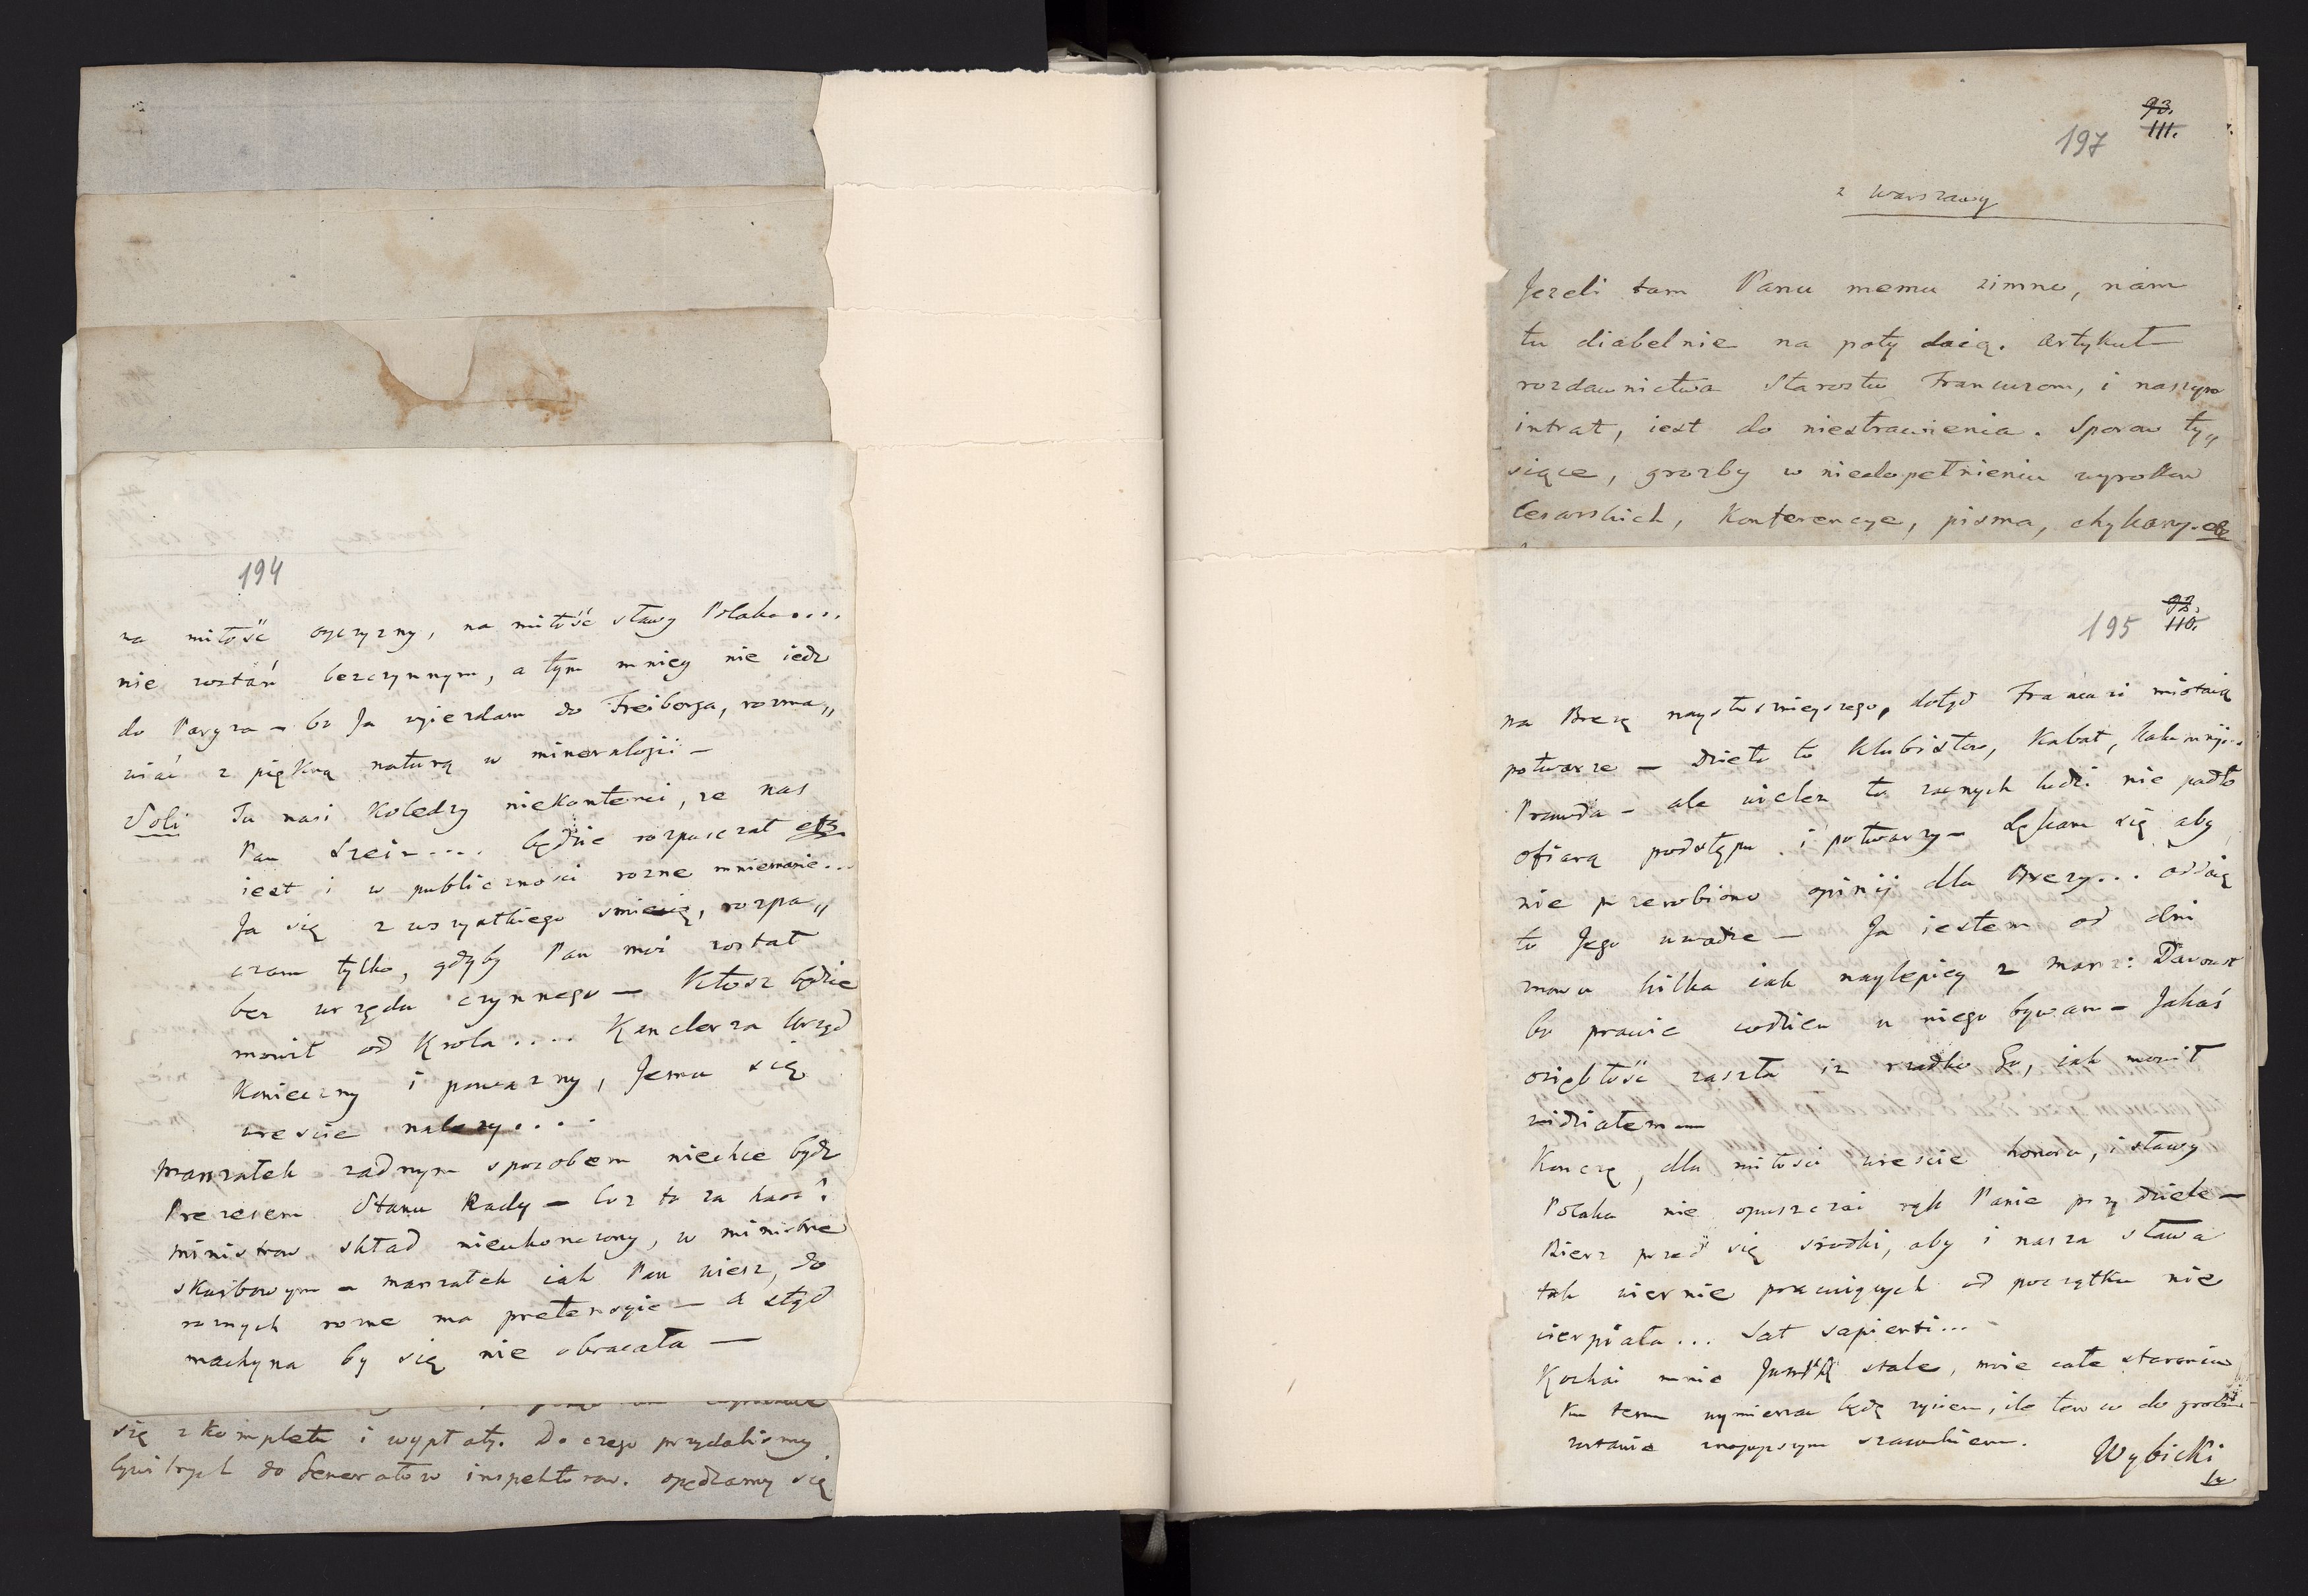 194
na miłość oyczyzny, na miłość sławy Polaka....
nie zostań bezczynnym, a tym mniey nie iedz
do Paryza – bo Ja wyiezdam do Freiberga, rozma„
wiać z piękną naturą w mineralogii –
Soli Tu nasi Koledzy niekontenci, ze nas
Pan będzie rozpuszczał etz
iest i w publicznosci rozne mniemanie...
Ja się z wszystkiego smieię, rozpa„
czam tylko, gdyby Pan moi został
bez urzędu czynnego – Ktosz będzie
monit od Krola.... Kanclerza Urząd
Konieczny i powazny, Jemu się
wrescie nalezy....
Marszałek zadnym sposobem niechce bydz
Prezesem Stanu Rady – Coz to za
ministrow skład nieukonczony, w ministrze
skarbowym – marszałek iak Pan wiesz, do
roznych rozne ma pretensyie – a stąd
machyna by się nie obracała –
się z Kompletu i wypłaty. Do czego przydalismy
do Generałow inspektorow. opędzamy się
93.
111.
197
z Warszawy
Jezeli tam Panu memu zimno, nam
tu diabelnie na poty daią. Artykuł
rozdawnictwa Starostw Francuzom, i naszym
intrat, iest do niestrawienia. Sporow ty„
siące, grozby w niedopełnieniu wyrokow
Cesarskich, Konferencye, pisma, chykany. etz
93.
110.
195
na Brezę naysłusznieyszego, dotąd Francuzi miotaią
potwarze – Dzieło to Klubistow, Kabał,
Prawda – ale wielez to zacnych ludzi nie padło
ofiarą podstępu i potwarzy – Lękam się aby
nie przerobiono opinij dla Brezy... oddaię
to Jego uwadze – Ja iestem od dni
znowu kilka iak naylepiey z mars: Davoust
bo prawie codzien u niego bywam – Jakaś
oziębłość zaszła iz rzadko Go, iak monit
widziałem –
Konczę, dla miłosci wrescie honoru, i sławy
Polaka nie opuszczai rąk Panie przy dziele –
Bierz przed się srodki, aby i nasza sława
tak wiernie pracuiących od początku nie
cierpiała... Sat sapienti...
Kochai mnie stale, moie całe staranie
Ku temu wymierzać będę zyciem, ile tew w do grobu
zostanie z naywyszym szacunkiem.
Wybicki